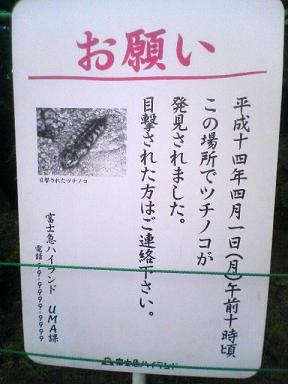 お願い
平成十四年四月一日(月)午前十時頃
この場所でツチノコが
発見されました。
目撃された方はご連絡下さい。
目撃されたツチノコ
富士急ハイランド UMA課
電話 99-9999-9999
富士急ハイランド